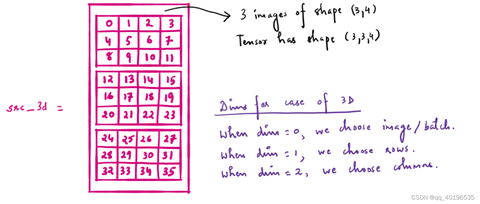 0 1 2 3
4 5 6 7
8 9 10 11
12 13 14 15
16 17 18 19
20 21 22 23
24 25 26 27
28 29 30 31
32 33 34 35
src_3d =
3 images of shape (3,4)
Tensor has shape (3,3,4)
Dims for case of 3D
When dim = 0, we choose image/batch.
When dim = 1, we choose rows.
When dim = 2, we choose columns.
CSDN @qq_45196535